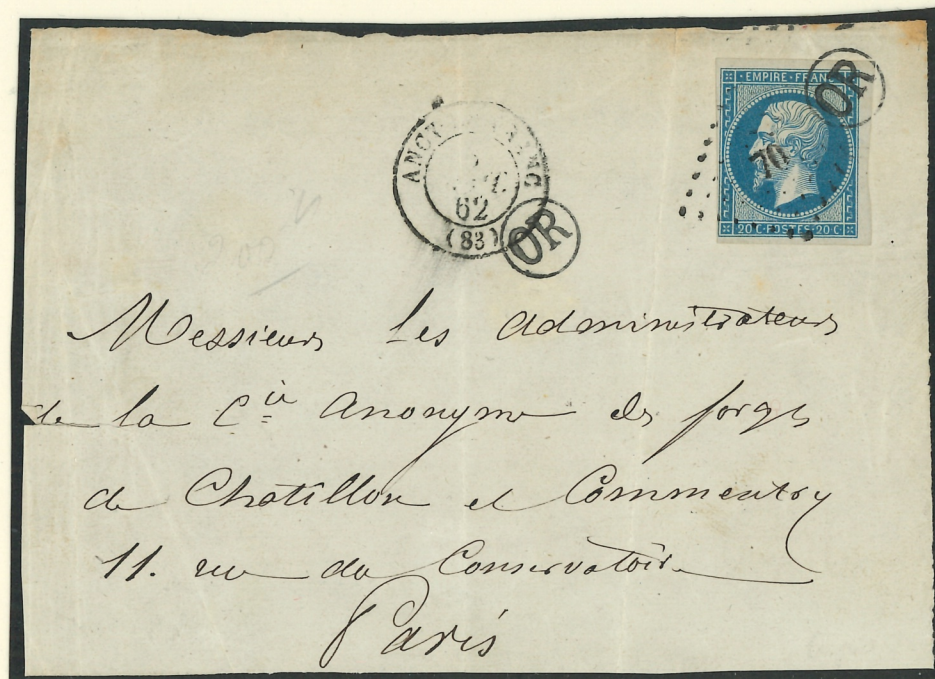 EMPIRE FRANC
OR
70
20 C. POSTES 20 C
62
(83)
OR
Messieurs les administrateurs
de la Cie Anonyme des forges
de Chatillon et Commentry
11. rue du Conservatoire
Paris